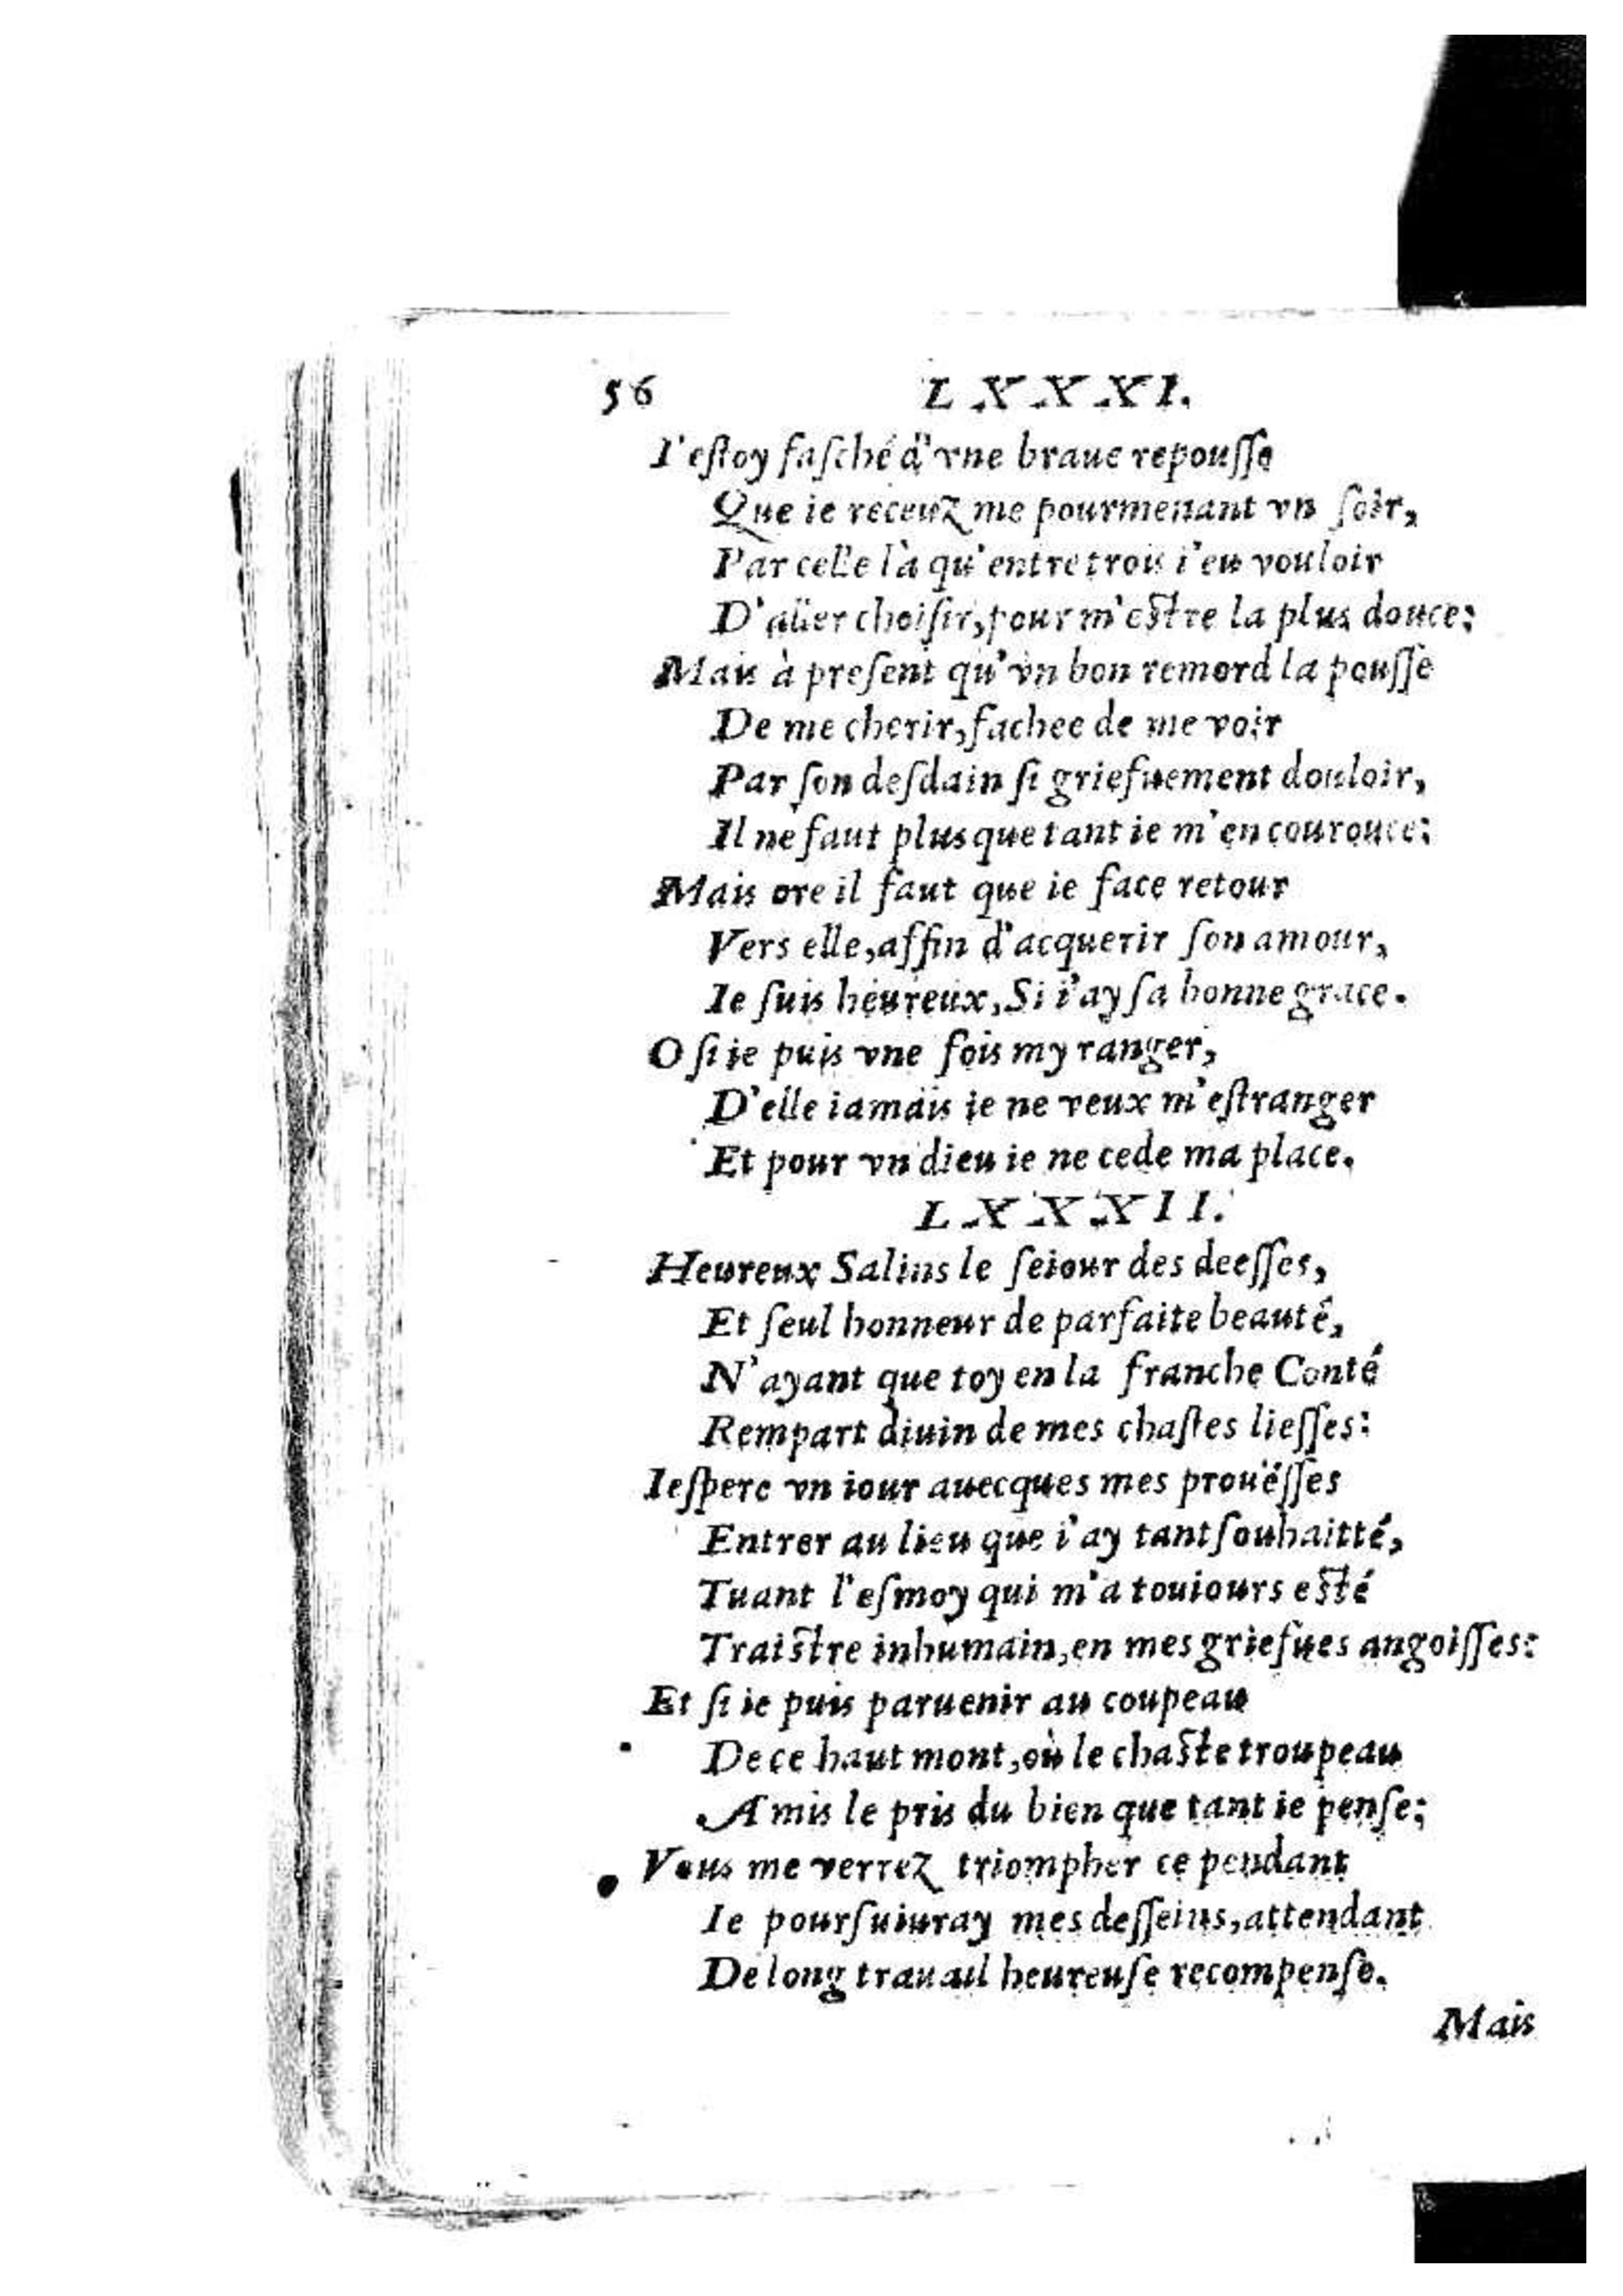 56 LXXXI.
I'eſtoy faſché d'vne braue repouſſe
Que ie receuz me pourmenant vn ſoir,
Par celle là qu'entre trois i'eu vouloir
D'aller choiſir, pour m'eſtre la plus douce;
Mais à preſent qu'vn bon remord la pouſſe
De me cherir, fachee de me voir
Par ſon deſdain ſi griefuement douloir,
Il ne faut plus que tant ie m'en courouce;
Mais ore il faut que ie face retour
Vers elle, affin d'acquerir ſon amour,
Ie ſuis heureux, Si i'ay ſa bonne grace.
O ſi ie puis vne fois my ranger,
D'elle iamais ie ne veux m'eſtranger
Et pour vn dieu ie ne cede ma place.
LXXXII.
Heureux Salins le ſeiour des deeſſes,
Et ſeul honneur de parfaite beauté,
N'ayant que toy en la franche Conté
Rempart diuin de mes chaſtes lieſſes:
Ieſpere vn iour auecques mes prouëſſes
Entrer au lieu que i'ay tant ſouhaitté,
Tuant l'eſmoy qui m'a touiours eſté
Traiſtre inhumain, en mes griefues angoiſſes:
Et ſi ie puis paruenir au coupeau
De ce haut mont, où le chaſte troupeau
A mis le pris du bien que tant ie penſe;
Vous me verrez triompher ce pendant
Ie pourſuiuray mes deſſeins, attendant
De long trauail heureuſe recompenſe.
Mais